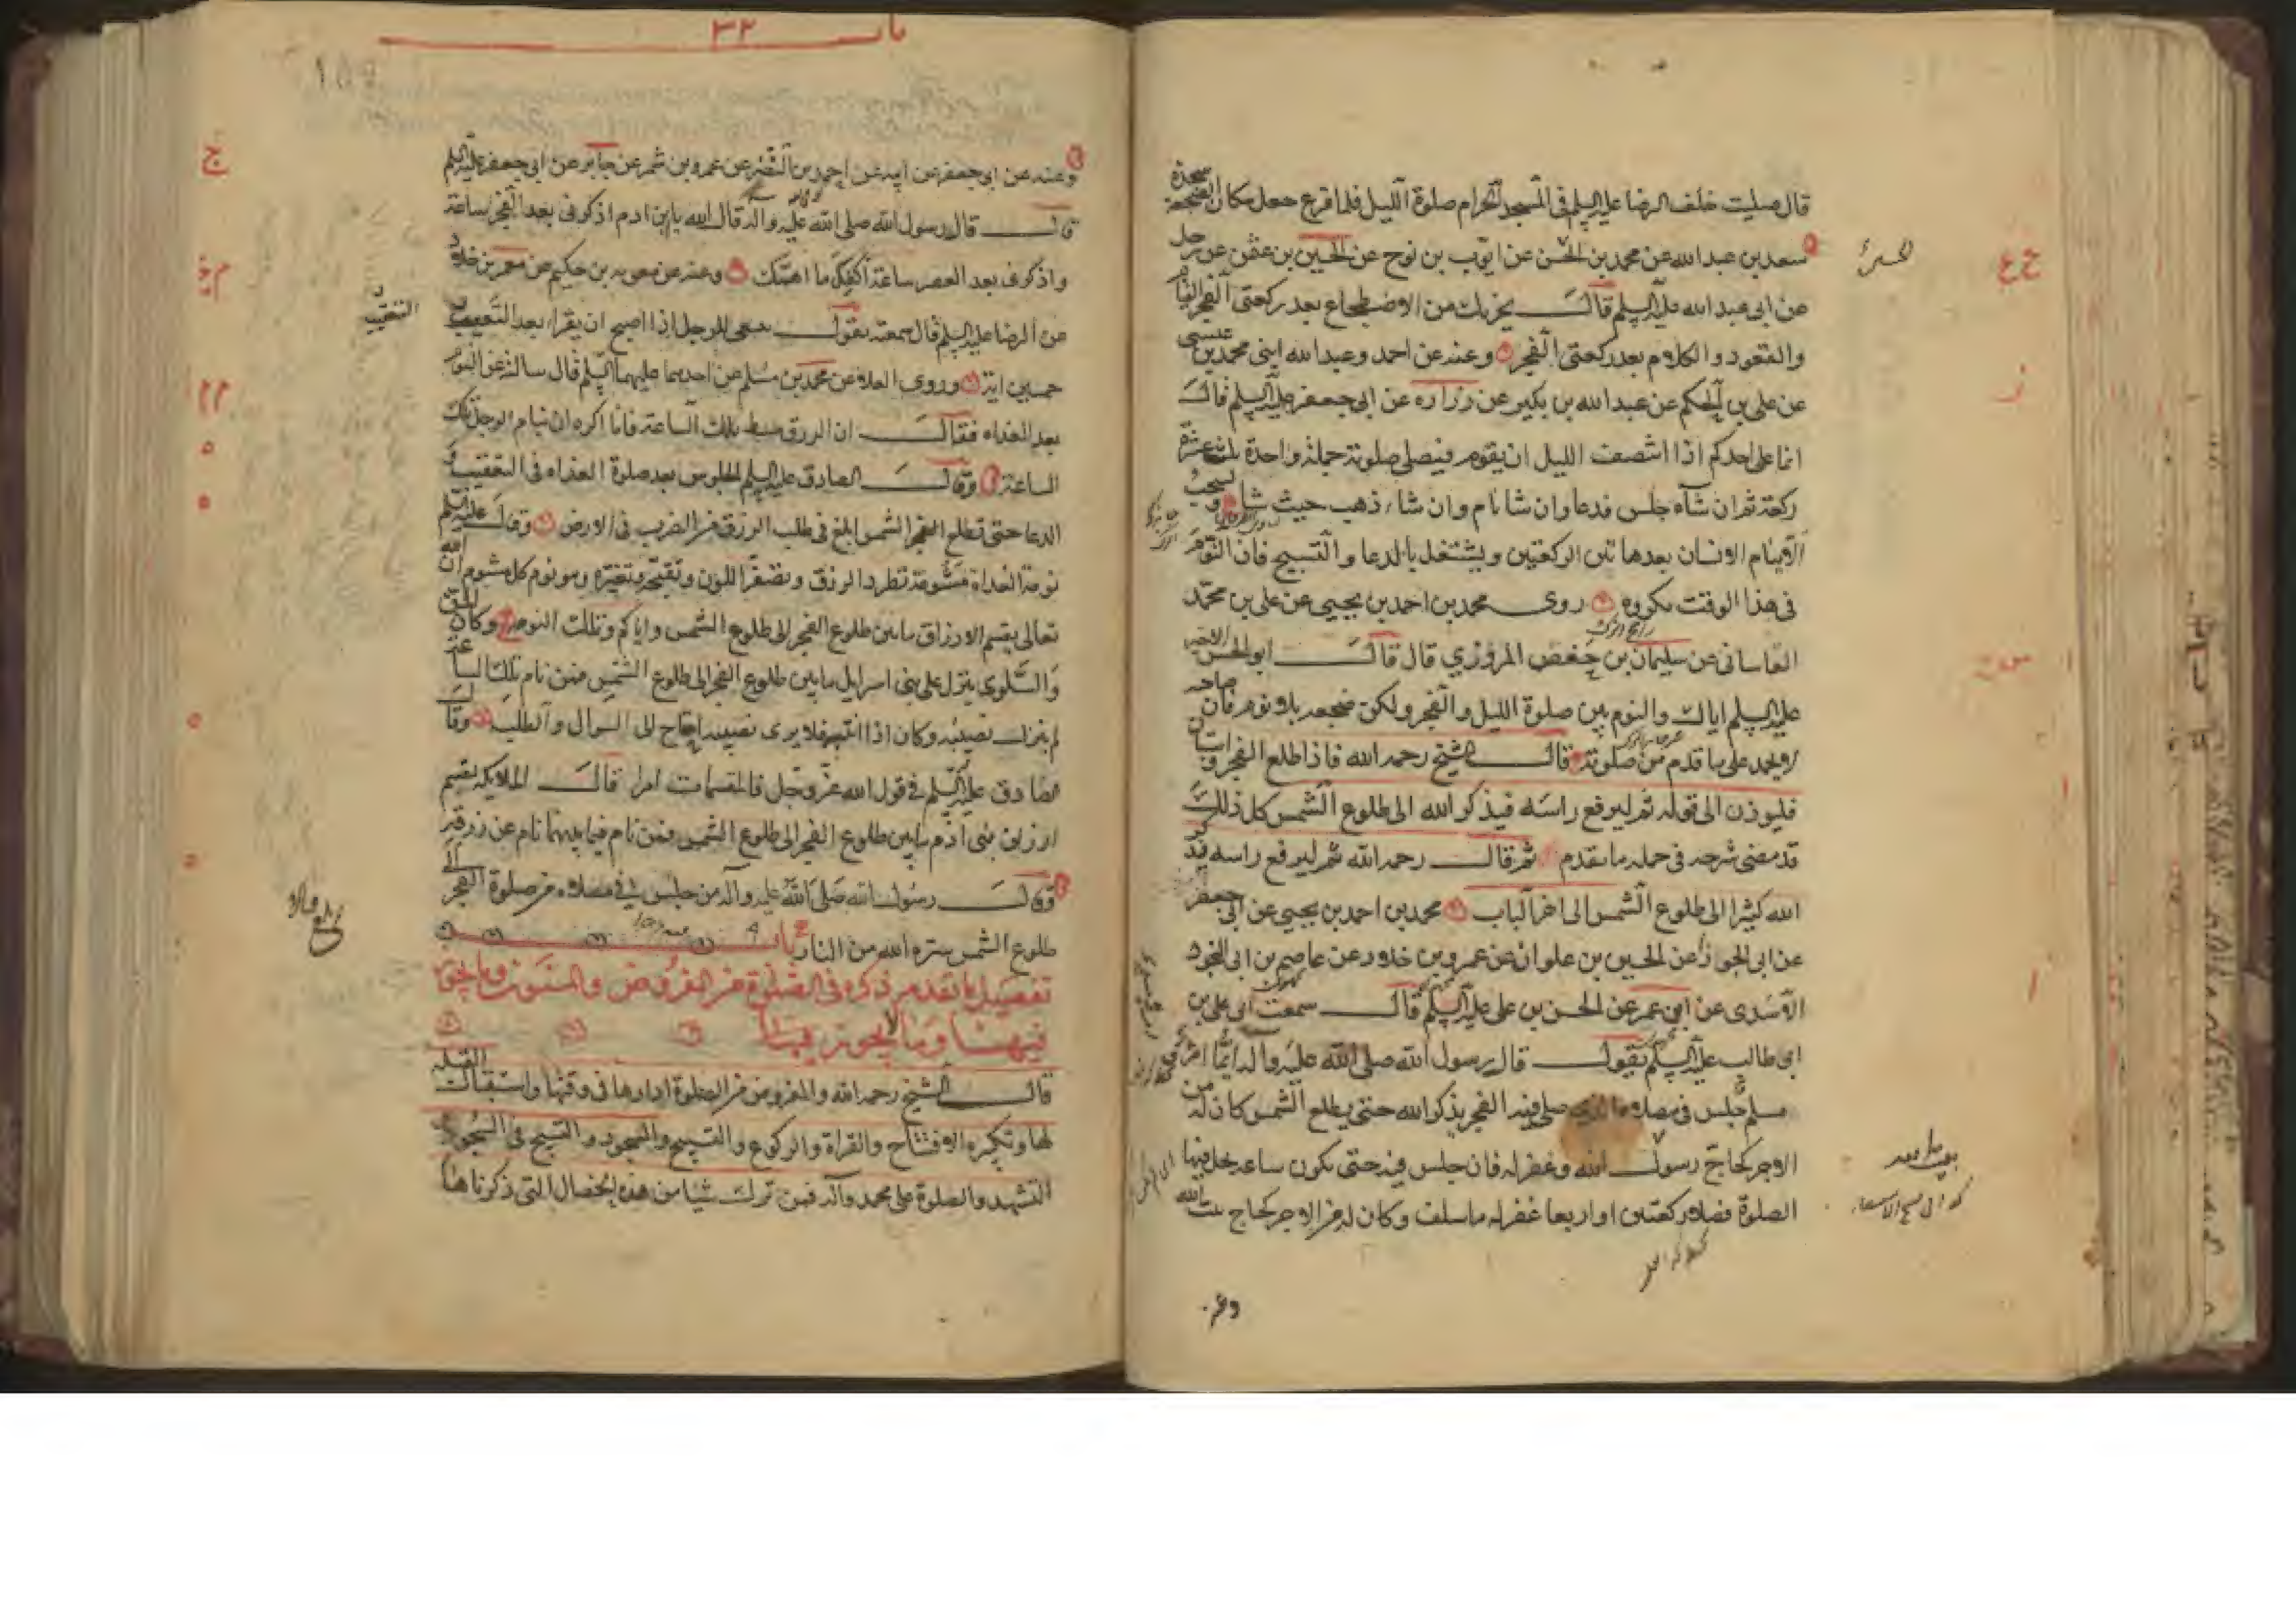 قال صليت خلف الرضا عليه السلم فى المسجد الحرام صلوة الليل فلما فرغ جعل مكان الضجعة سجدة
سعد بن عبد الله عن محمد بن الحسن عن ايوب بن نوح عن الحسين بن عثمن عن رجل
عن ابى عبد الله عليه السلم قال يجزيك من الاضطجاع بعد ركعتى الفجر القيام
والقعود والكلام بعد ركعتى الفجر وعنه عن احمد وعبد الله ابنى محمد بن عيسى
عن على بن الحكم عن عبد الله بن بكير عن زراره عن ابى جعفر عليه السلم قال
انما على احدكم اذا انتصف الليل ان يقوم فيصلى صلوته جملة واحدة ثلث عشرة
ركعة ثم ان شاء جلس فدعا وان شا نام وان شاء ذهب حيث شا ويستحب
الا ينام الانسان بعد هاتين الركعتين ويشتغل بالدعا والتسبيح فان النوم
فى هذا الوقت مكروه روى محمد بن احمد بن يحيى عن على بن محمد
القاسانى عن سليمان بن حفص المروزي قال قال ابو الحسن الاخير
عليه السلم اياك والنوم بين صلوة الليل والفجر ولكن ضجعه بلا نوم فان صاحبه
لا يحمد على ما قدم من صلوته قال الشيخ رحمه الله فاذا طلع الفجر
فليوذن الى قوله ثم ليرفع راسه فيذكر الله الى طلوع الشمس كل ذلك
قد مضى شرحه فى جمله ما تقدم ثم قال رحمه الله ثم ليرفع راسه فيذكر
الله كثيرا الى طلوع الشمس الى اخر الباب محمد بن احمد بن يحيى عن ابى جعفر
عن ابى الجوزا عن الحسين بن علوان عن عمرو بن خلد عن عاصم بن ابى النجود
الاسدى عن ابن عمر عن الحسن بن على عليه السلم قال سمعت ابى على بن
ابى طالب عليه السلم يقول قال رسول الله صلى الله عليه واله ايما امرئ
مسلم جلس فى مصلاه الذى صلى فيه الفجر يذكر الله حتى يطلع الشمس كان له من
الاجر كحاج رسول الله وغفر له فان جلس فيه حتى يكون ساعه تحل فيها
الصلوة فصلا ركعتين او اربعا غفر له ما سلف وكان له من الاجر كحاج بيت الله
باب ٣٢
وعنه عن ابى جعفر عن ابيه عن احمد بن النضر عن عمرو بن شمر عن جابر عن ابى جعفر عليه السلم
قال قال رسول الله صلى الله عليه واله قال الله يا بن ادم اذكرنى بعد الفجر ساعة
واذكرنى بعد العصر ساعة اكفك ما اهمك وعنه عن معويه بن حكيم عن معمر بن خلاد
عن الرضا عليه السلم قال سمعته يقول ينبغى للرجل اذا اصبح ان يقراء بعد التعقيب
خمسين اية وروى العلاء عن محمد بن مسلم عن احدهما عليهما السلم قال سالته عن النوم
بعد الغداه فقال ان الرزق يبسط تلك الساعة فانا اكره ان ينام الرجل تلك
الساعة وقال الصادق عليه السلم الجلوس بعد صلوة الغداه فى التعقيب و
الدعا حتى تطلع الشمس ابلغ فى طلب الرزق من الضرب فى الارض وقال عليه السلم
نومة الغداه مشومة تطرد الرزق وتصفر اللون وتقبحه وتغيره وهو نوم كل مشوم ان الله
تعالى يقسم الارزاق ما بين طلوع الفجر الى طلوع الشمس واياكم وتلك النومة وكان المن
والسلوى ينزل على بنى اسرايل ما بين طلوع الفجر الى طلوع الشمس فمن نام تلك الساعة
لم ينزل نصيبه وكان اذا انتبه فلا يرى نصيبه احتاج الى السوال والطلب وقال
الصادق عليه السلم فى قول الله عز وجل فالمقسمات امرا قال الملايكه تقسم
ارزاق بنى آدم ما بين طلوع الفجر الى طلوع الشمس فمن نام فيما بينهما نام عن رزقه
وقال رسول الله صلى الله عليه واله من جلس فى مصلاه من صلوة الفجر الى
طلوع الشمس ستره الله من النار باب
تفصيل ما تقدم ذكره فى الصلوة من المفروض والمسنون وما يجوز
فيها وما لا يجوز فيها
قال الشيخ رحمه الله والمفروض من الصلوة اداوها فى وقتها واستقبال القبله
لها وتكبيره الافتتاح والقراة والركوع والتسبيح والسجود والتسبيح فى السجود
التشهد والصلوة على محمد واله فمن ترك شيا من هذه الخصال التى ذكرناها
التعقيب